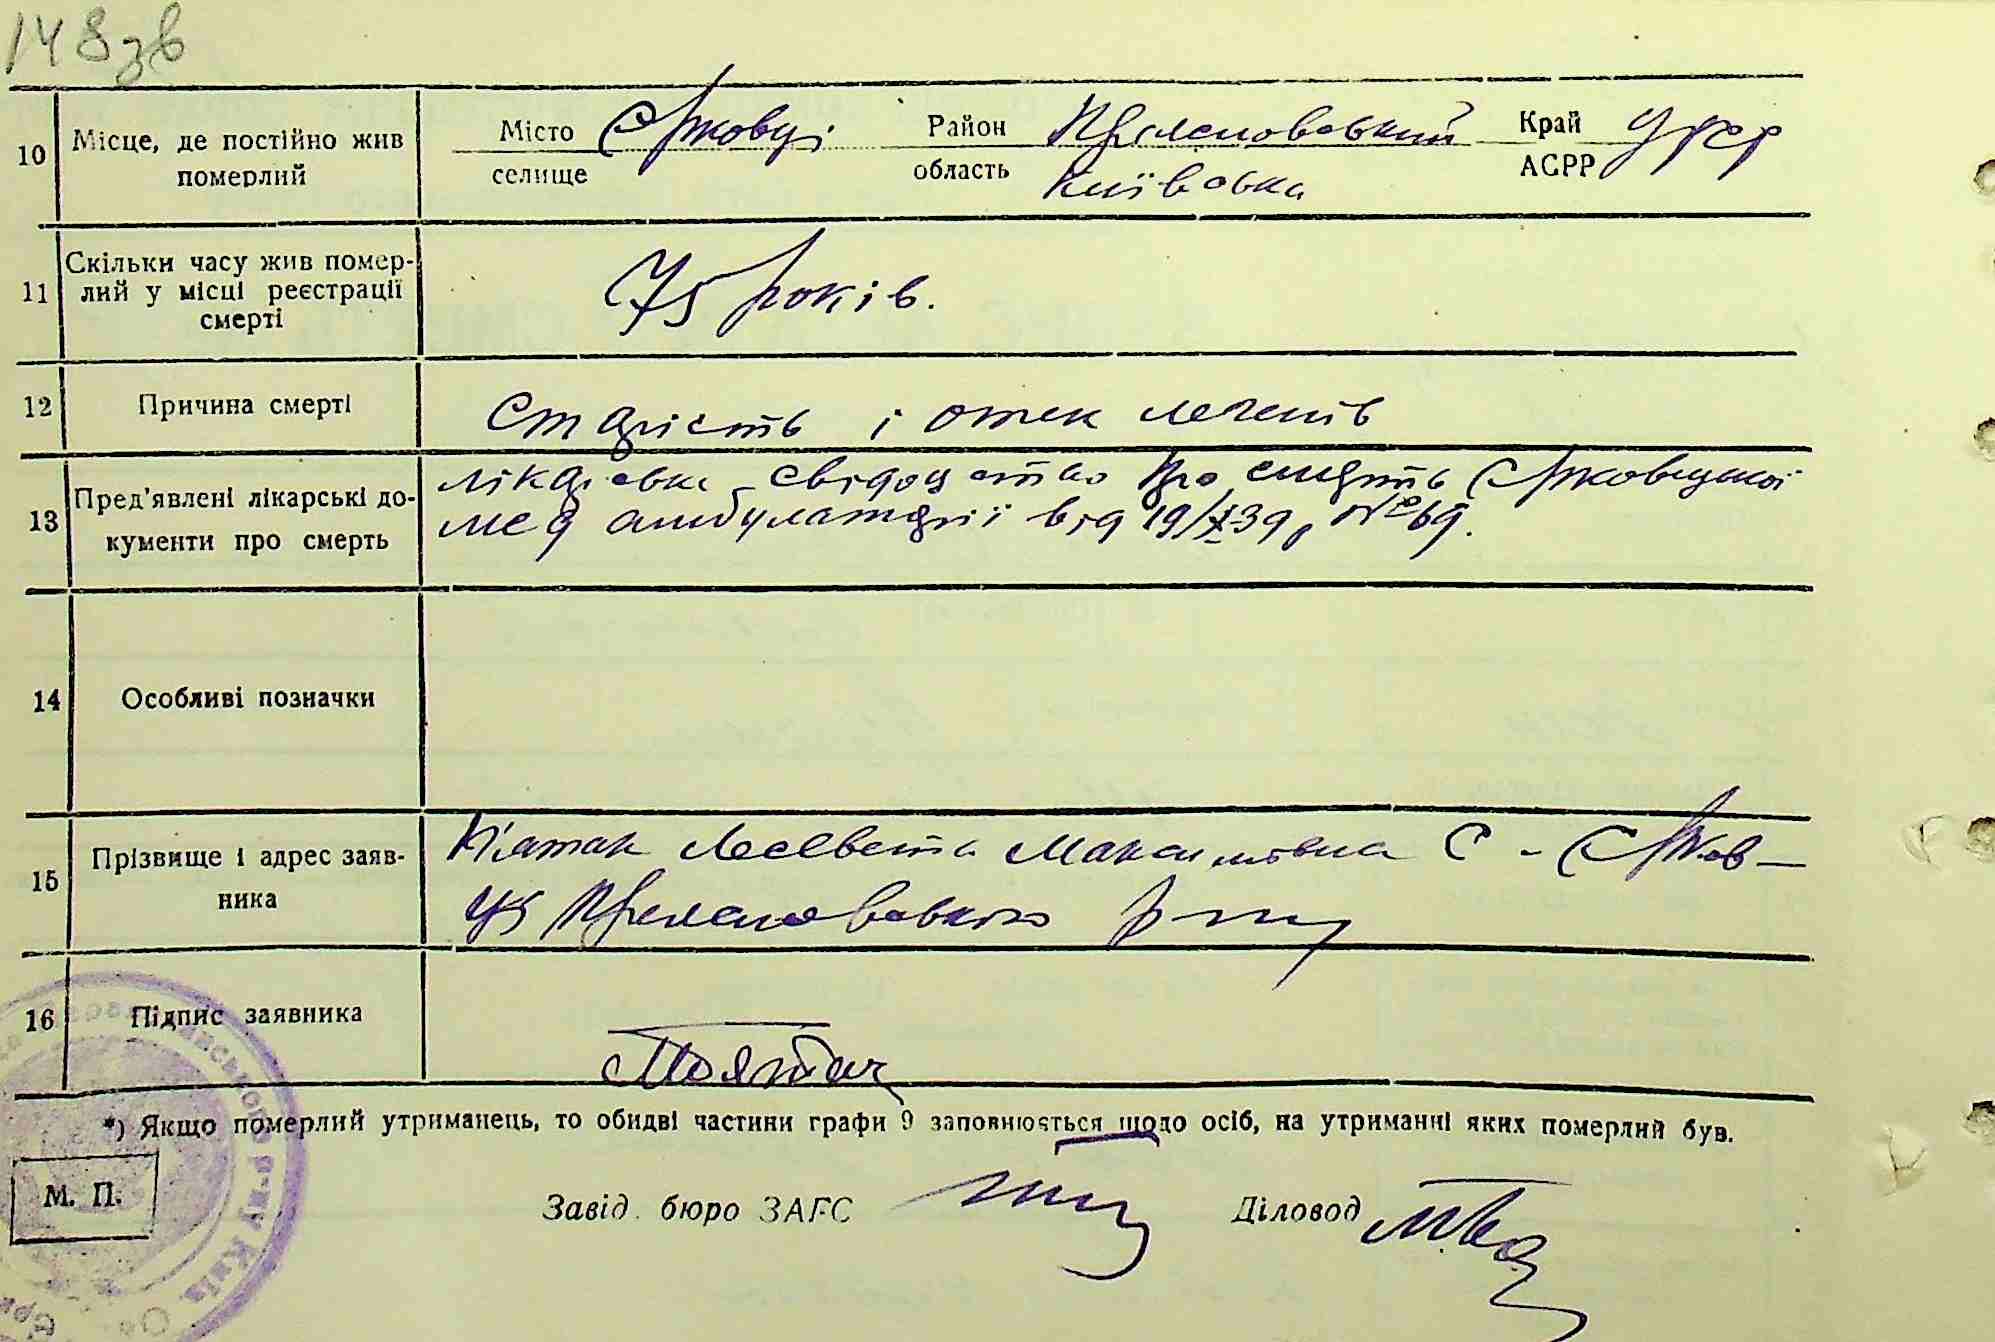 148зв
10 Місце, де постійно жив померлий Місто селище Єрковці Район область Київська Край АСРР УРСР
11 Скільки часу жив померлий у місці реєстрації смерті 75 років.
12 Причина смерті Старість і отек легенів
13 Пред'явлені лікарські документи про смерть лікарське свідоцтво про смерть Єрковецької
мед амбулаторії від 19/X 39 р №69.
14 Особливі позначки
15 Прізвище і адрес заявника Максимовна С. Єрков-
ці р-ну
16 Підпис заявника
*) Якщо померлий утриманець, то обидві частини графи 9 заповнюється щодо осіб, на утриманні яких померлий був.
М. П.
Завід. бюро ЗАГС Діловод